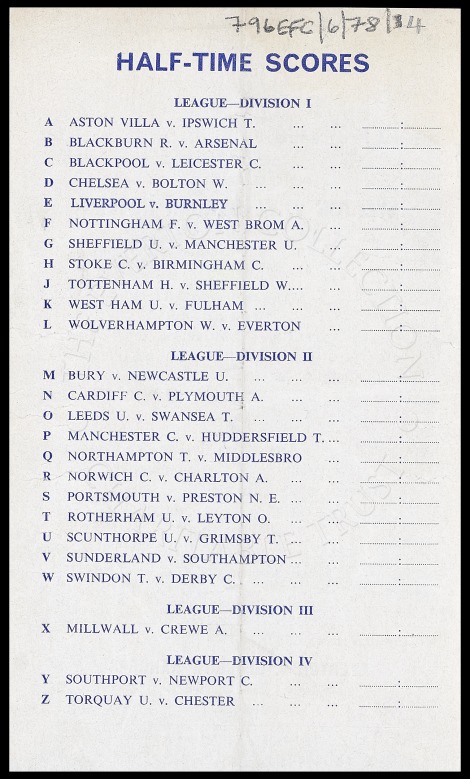 796EFC/6/78/34
HALF-TIME SCORES
LEAGUE—DIVISION I
A ASTON VILLA v. IPSWICH T. ... ... ............:............
B BLACKBURN R. v. ARSENAL ... ... ............:............
C BLACKPOOL v. LEICESTER C. ... ... ............:............
D CHELSEA v. BOLTON W. ... ... ... ............:............
E LIVERPOOL v. BURNLEY ... ... ............:............
F NOTTINGHAM F. v. WEST BROM A. ... ............:............
G SHEFFIELD U. v. MANCHESTER U. ... ............:............
H STOKE C. v. BIRMINGHAM C. ... ... ............:............
J TOTTENHAM H. v. SHEFFIELD W.... ... ............:............
K WEST HAM U. v. FULHAM ... ... ... ............:............
L WOLVERHAMPTON W. v. EVERTON ... ............:............
LEAGUE—DIVISION II
M BURY v. NEWCASTLE U. ... ... ... ............:............
N CARDIFF C. v. PLYMOUTH A. ... ... ............:............
O LEEDS U. v. SWANSEA T. ... ... ... ............:............
P MANCHESTER C. v. HUDDERSFIELD T. ... ............:............
Q NORTHAMPTON T. v. MIDDLESBRO ... ............:............
R NORWICH C. v. CHARLTON A. ... ... ............:............
S PORTSMOUTH v. PRESTON N. E. ... ... ............:............
T ROTHERHAM U. v. LEYTON O. ... ... ............:............
U SCUNTHORPE U. v. GRIMSBY T. ... ... ............:............
V SUNDERLAND v. SOUTHAMPTON ... ... ............:............
W SWINDON T. v. DERBY C. ... ... ... ............:............
LEAGUE—DIVISION III
X MILLWALL v. CREWE A. ... ... ... ............:............
LEAGUE—DIVISION IV
Y SOUTHPORT v. NEWPORT C. ... ... ............:............
Z TORQUAY U. v. CHESTER ... ... ... ............:............